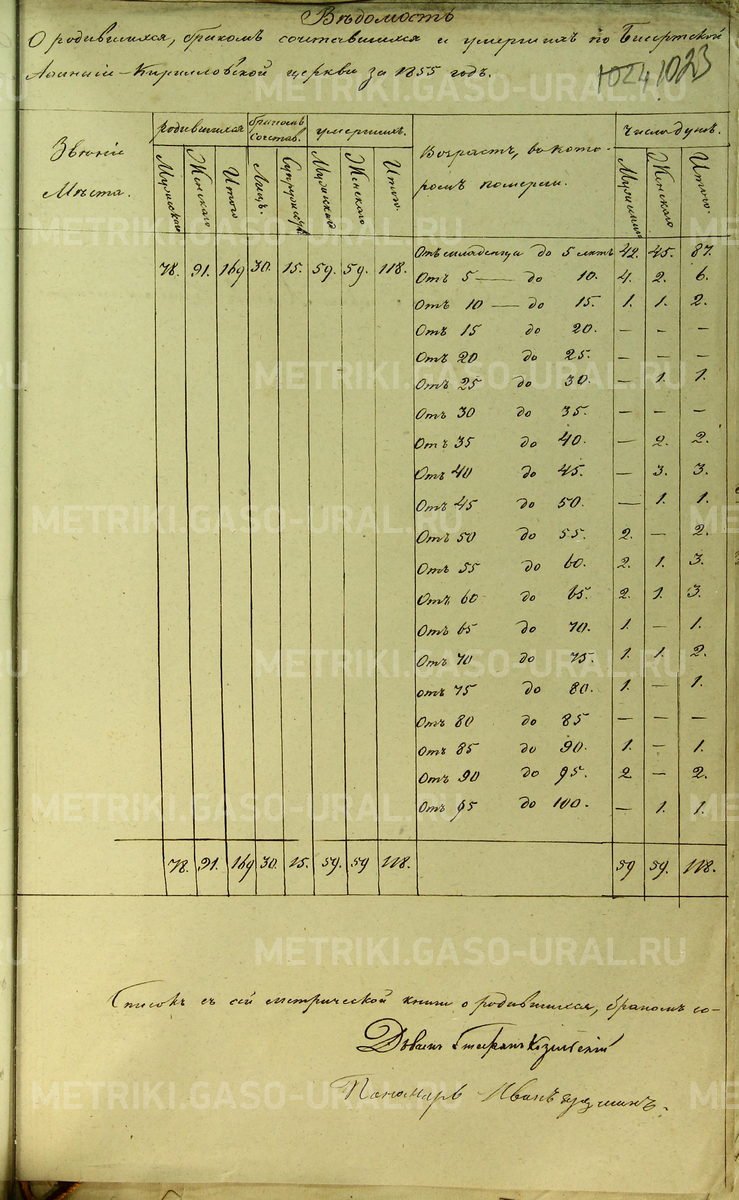 Вѣдомость
О родившихся, бракомъ сочетавшихся и умершихъ по Бисертской
Аѳинъ-Кирилловской церкви за 1855 годъ.
1023
Званіе
Мѣста.
родившихся
бракомъ
сочетав.
умершихъ.
Возрастъ, въ кото-
ромъ померли.
Число душъ.
Мужскаго Женскаго Итого Лицъ. Супружествъ Мужскаго Женскаго Итого. Мужскаго Женскаго Итого.
Отъ младенца до 5 лѣтъ 42. 45. 87.
78. 91. 169 30. 15. 59. 59. 118. Отъ 5 — до 10. 4. 2. 6.
Отъ 10 — до 15. 1. 1. 2.
Отъ 15 до 20. — — —
Отъ 20 до 25. — — —
Отъ 25 до 30. — 1. 1.
Отъ 30 до 35. — — —
Отъ 35 до 40. — 2. 2.
Отъ 40 до 45. — 3. 3.
Отъ 45 до 50. — 1. 1.
Отъ 50 до 55. 2. — 2.
Отъ 55 до 60. 2. 1. 3.
Отъ 60 до 65. 2. 1. 3.
Отъ 65 до 70. 1. — 1.
Отъ 70 до 75. 1. 1. 2.
отъ 75 до 80. 1. — 1.
Отъ 80 до 85 — — —
Отъ 85 до 90. 1. — 1.
Отъ 90 до 95. 2 — 2.
Отъ 95 до 100. — 1. 1.
78. 91. 169 30. 15. 59. 59 118. 59 59. 118.
Списокъ съ сей метрической книги о родившихся, бракомъ со-
Стефанъ
Пономарь Иванъ
METRIKI.GASO-URAL.RU